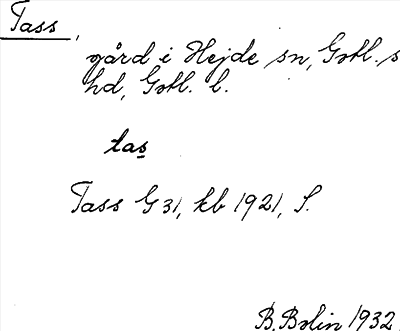 Tass,
gård i Hejde sn, Gotl. s
hd, Gotl. l.
tas
Tass G 31, kb 1921, S.
B. Bolin 1932